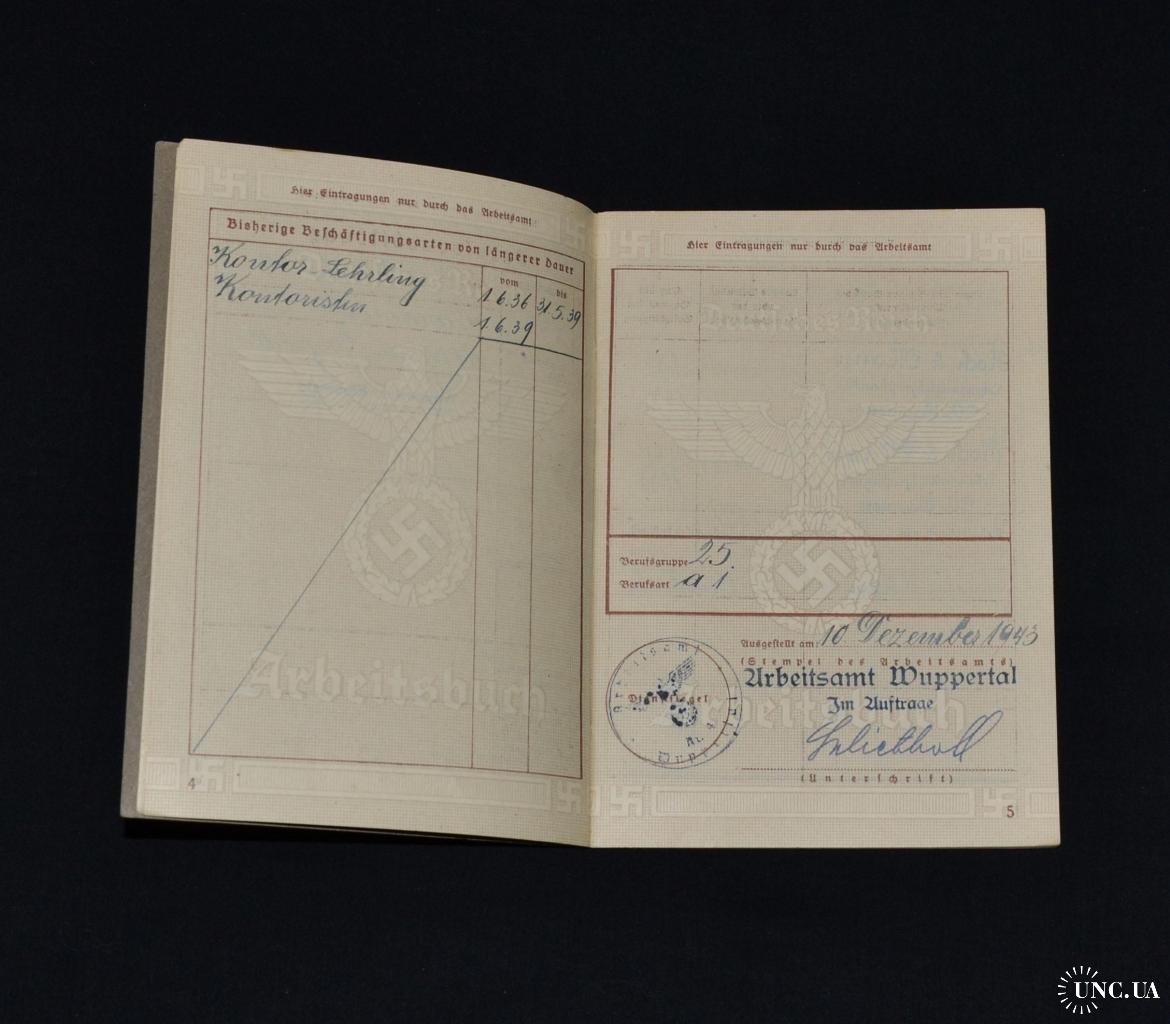 Hier Eintragungen nur durch das Arbeitsamt
Bisherige Beschäftigungsarten von längerer Dauer
vom bis
Kontor Lehrling 1.6.36 31.5.39
Kontoristin 1.6.39
Arbeitsbuch
4
Hier Eintragungen nur durch das Arbeitsamt
Deutsches Reich
Berufsgruppe 25.
Berufsart a 1
Ausgestellt am 10 Dezember 1943
(Stempel des Arbeitsamts)
Arbeitsamt Wuppertal
Im Auftrage
Arbeitsbuch
(Unterschrift)
Arbeitsamt
Dienstsiegel
Wuppertal
5
UNC.UA